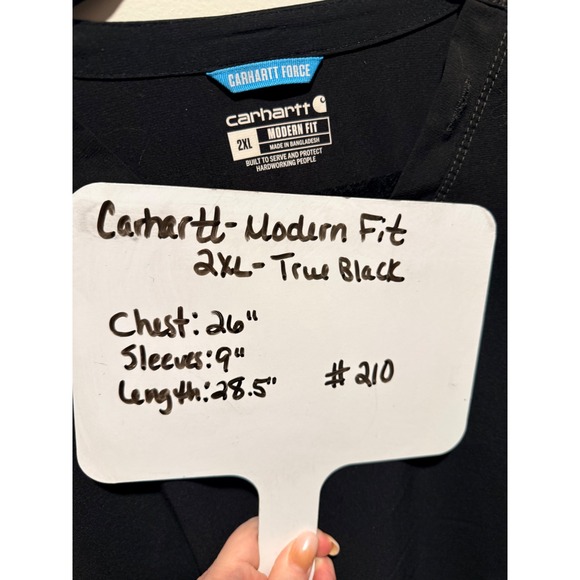 CARHARTT FORCE
carhartt
2XL MODERN FIT
MADE IN BANGLADESH
BUILT TO SERVE AND PROTECT
HARDWORKING PEOPLE
Carhartt-Modern Fit
2XL-True Black
Chest: 26"
Sleeves: 9"
Length: 28.5"
#210